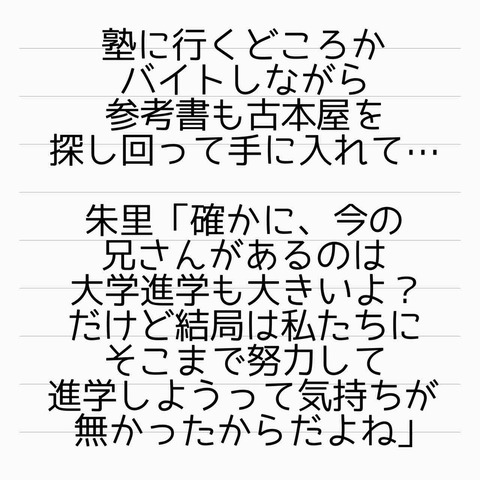 塾に行くどころか
バイトしながら
参考書も古本屋を
探し回って手に入れて…
朱里「確かに、今の
兄さんがあるのは
大学進学も大きいよ？
だけど結局は私たちに
そこまで努力して
進学しようって気持ちが
無かったからだよね」